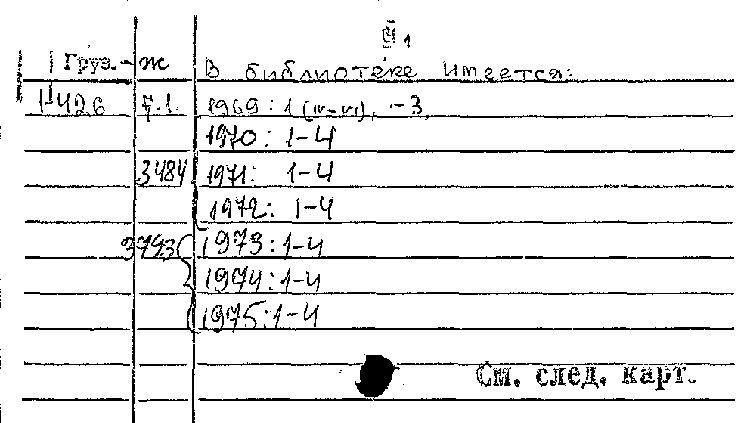 Груз. - Ж В библиотеке имеется:
1969: 1 (III-VI), -3
1970: 1-4
3484 1971: 1-4
1972: 1-4
3793 1973: 1-4
1974: 1-4
1975: 1-4
См. след. карт.